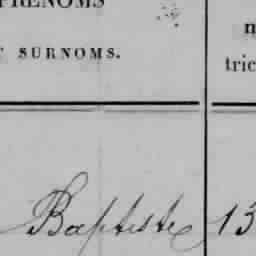 PRÉNOMS
SURNOMS.
Baptiste 13